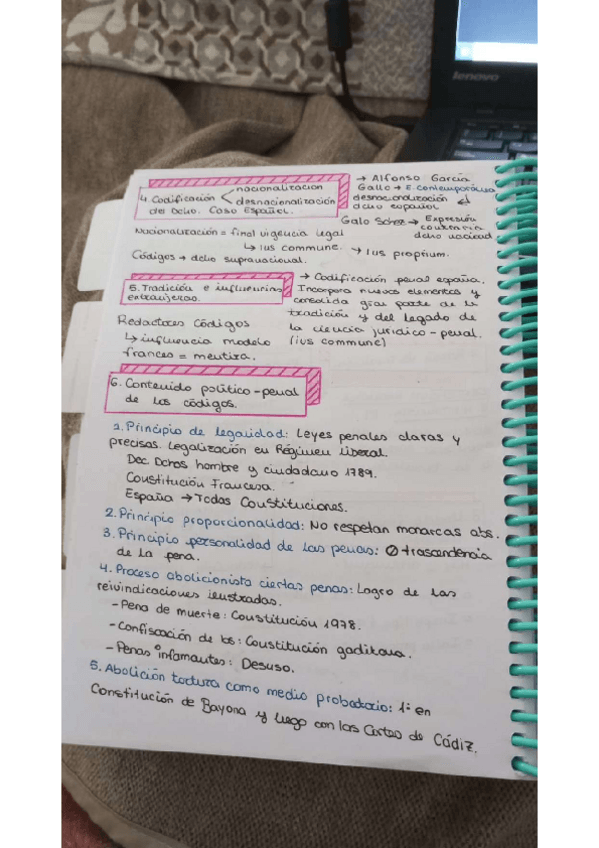 lenovo
nacionalización
4. Codificación < desnacionalización
del Dcho. Caso Español.
→ Alfonso García
Gallo → E. contemporánea
desnacionalización el
dcho español.
Galo Schez → Expresión
dcho nacional
Nacionalización = final vigencia legal
↳ ius commune. → Ius proprium.
Códigos → dcho supranacional.
5. Tradición e influencias
extranjeras.
→ Codificación penal española.
Incorpora nuevos elementos y
consolida gran parte de la
tradición y del legado de
la ciencia jurídico-penal.
(ius commune)
Redactores Códigos
↳ influencia modelo
francés = mentira.
6. Contenido político-penal
de los códigos.
1. Principio de legalidad: Leyes penales claras y
precisas. Legalización en Régimen liberal.
Dec. Dchos hombre y ciudadano 1789.
Constitución Francesa.
España → Todas Constituciones.
2. Principio proporcionalidad: No respetan monarcas abs.
3. Principio personalidad de las penas: Ø trascendencia
de la pena.
4. Proceso abolicionista ciertas penas: Logro de las
reivindicaciones ilustradas.
- Pena de muerte: Constitución 1978.
- Confiscación de bs: Constitución gaditana.
- Penas infamantes: Desuso.
5. Abolición tortura como medio probatorio: 1º en
Constitución de Bayona y luego con las Cortes de Cádiz.